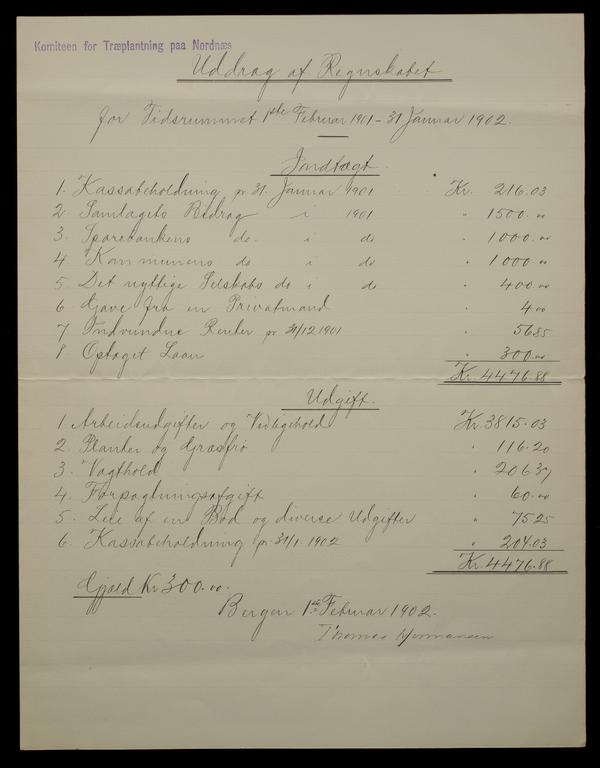 Komiteen for Træplantning paa Nordnæs
Uddrag af Regnskabet
for Tidsrummet 1ste Februar 1901 - 31 Januar 1902.
Indtægt.
1. Kassabeholdning pr. 31. Januar 1901 Kr. 216.03
2. Samlagets Bidrag i 1901 " 1500.00
3. Sparebankens do. i do " 1000.00
4 Kommunens do i do " 1000.00
5. Det nyttige Selskabs do i do " 400.00
6 Gave fra en Privatmand " 4.00
7 Indvundne Renter pr 31/12 1901 " 56.85
8 Optaget Laan " 300.00
Kr 4476.88
Udgift.
1 Arbeidsudgifter og Vedligehold Kr. 3815.03
2. Planter og Græsfrø " 116.20
3. Vagthold " 206.37
4. Forpagtningsafgift " 60.00
5. Leie af en Bod og diverse Udgifter " 75.25
6. Kassabeholdning pr. 31/1. 1902 " 204.03
Kr 4476.88
Gjæld Kr 300.00.
Bergen 1ste Februar 1902.
Thomas Hermansen